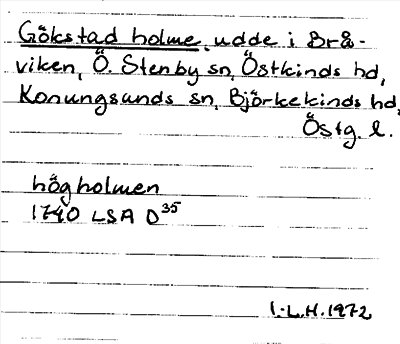 Gökstad holme, udde i Brå-
viken, Ö. Stenby sn, Östkinds hd,
Konungsunds sn, Björkekinds hd,
Östg. l.
högholmen
1740 LSA D35
I.-L.H. 1972